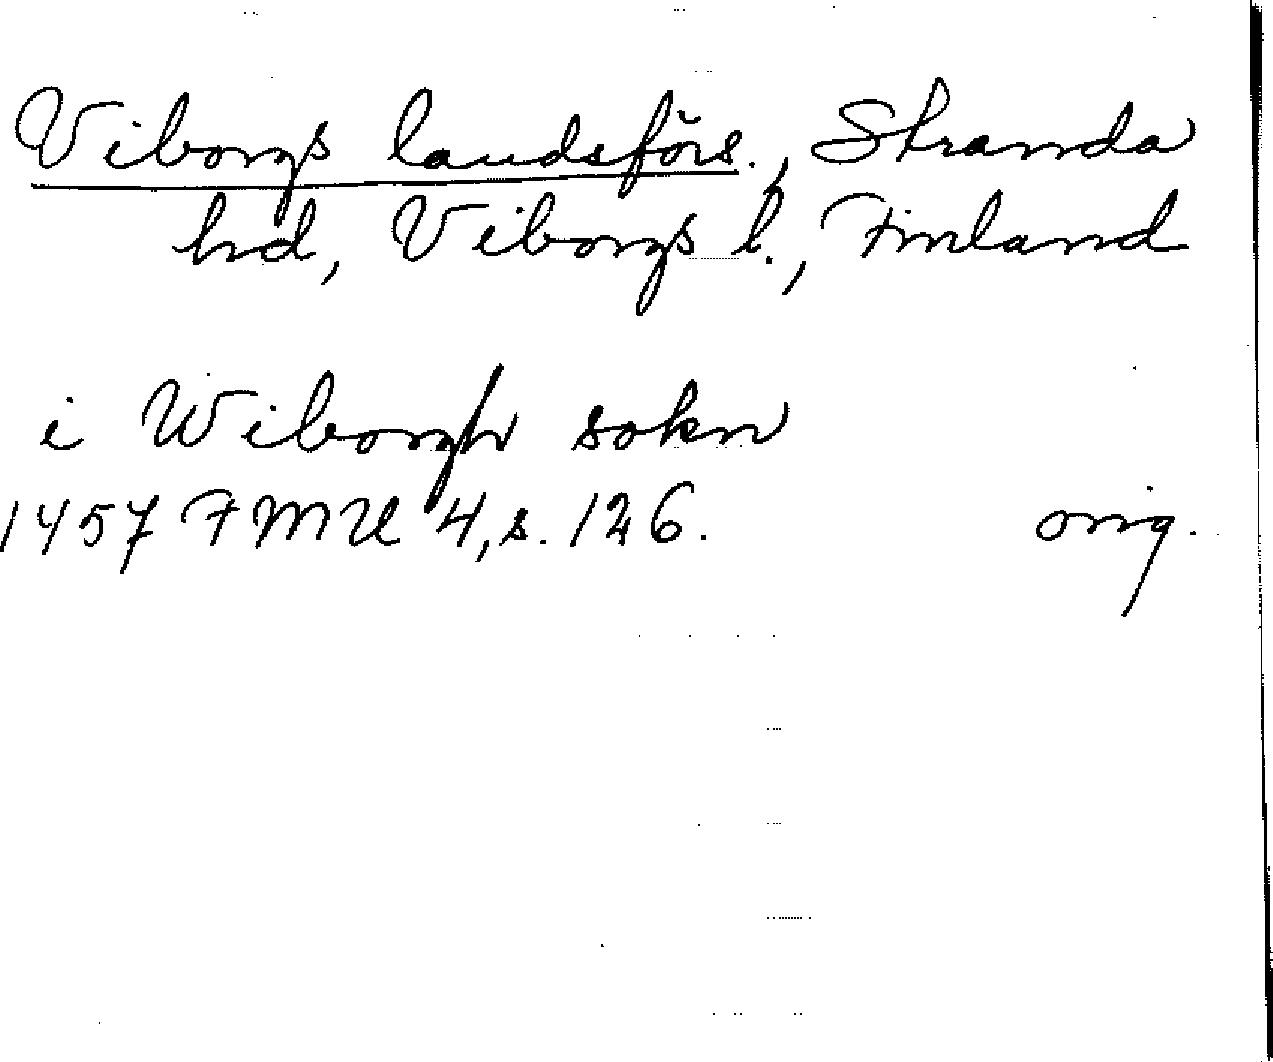 Viborgs landsförs., Stranda
hd, Viborgs l., Finland
i Wiborgh sokn
1457 FMU 4, s. 126. orig.